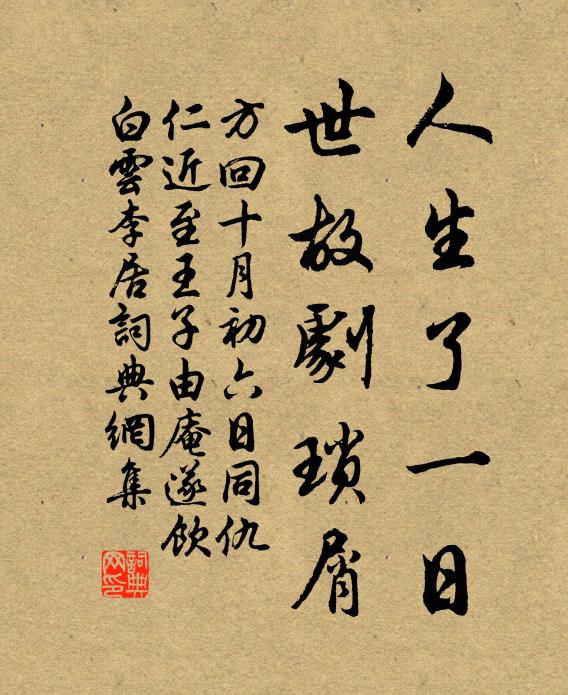 人生了一日
世故劇瑣屑
方回十月初六日同仇
仁近至王子由庵遂飲
白雲李居詞典網集
詞典
网印